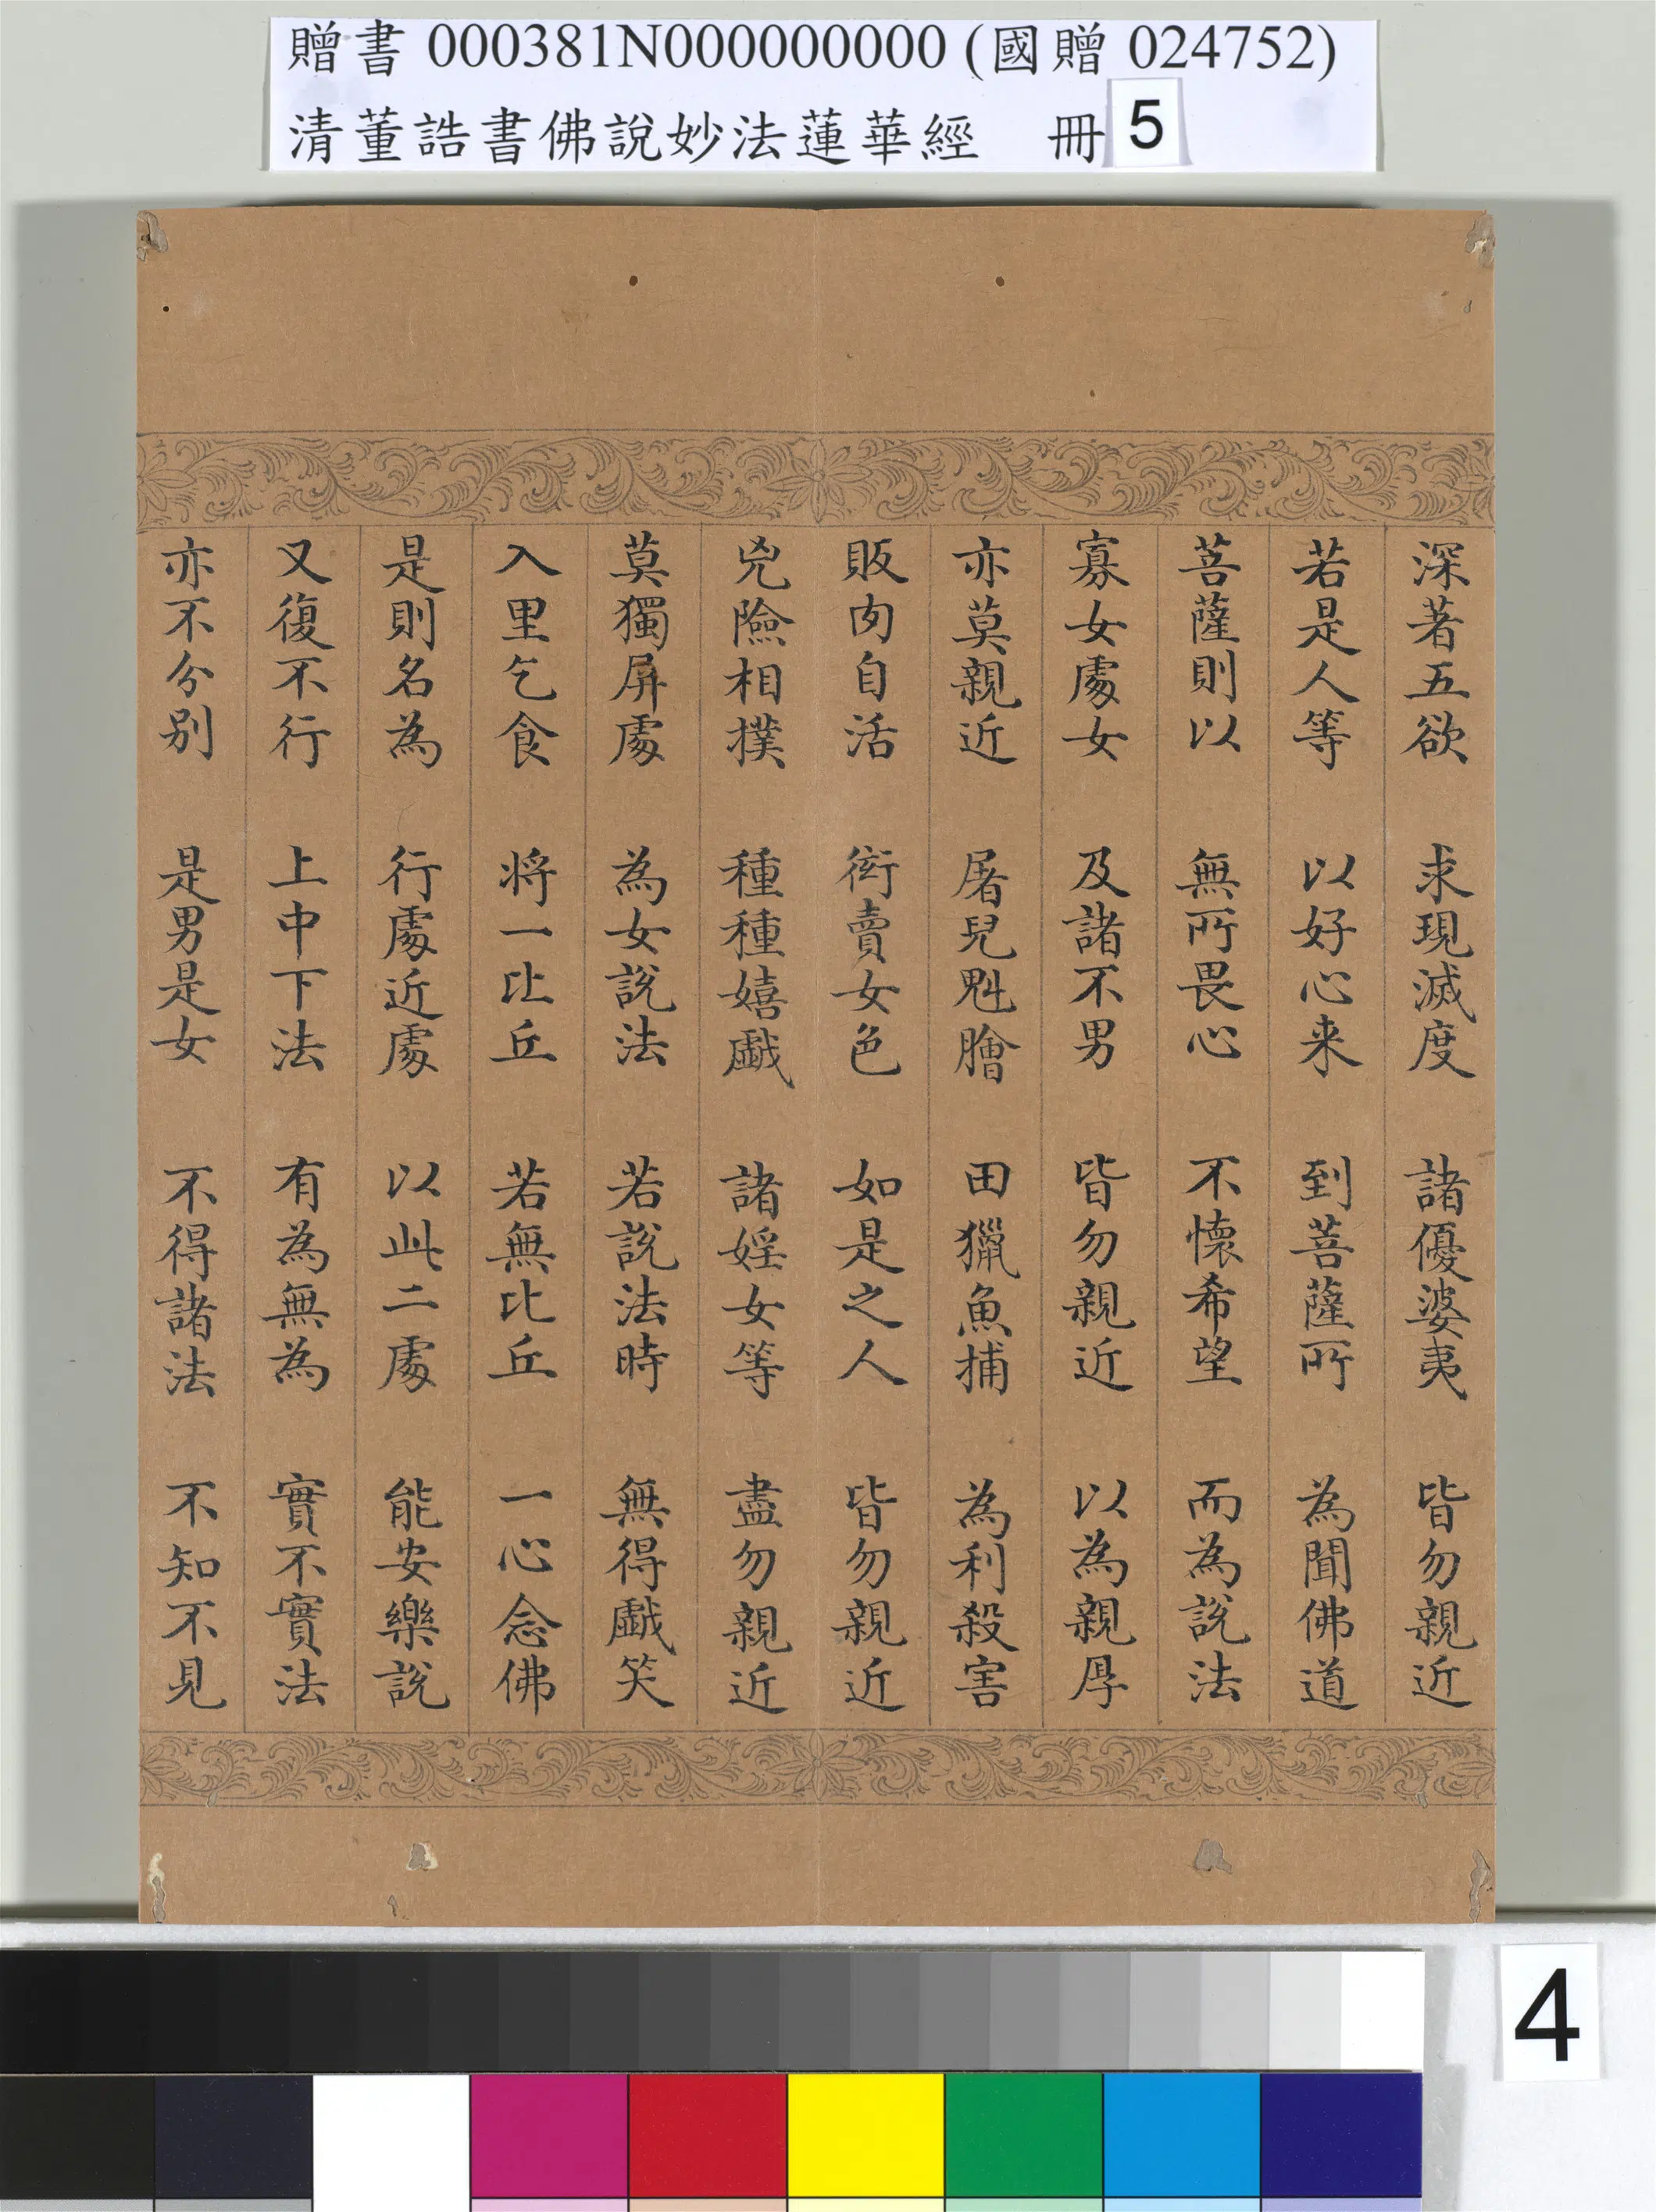 贈書 000381N000000000 (國贈 024752)
清董誥書佛說妙法蓮華經 冊 5
深著五欲 求現滅度 諸優婆夷 皆勿親近
若是人等 以好心来 到菩薩所 為聞佛道
菩薩則以 無所畏心 不懷希望 而為說法
寡女處女 及諸不男 皆勿親近 以為親厚
亦莫親近 屠兒魁膾 田獵魚捕 為利殺害
販肉自活 衒賣女色 如是之人 皆勿親近
兇險相撲 種種嬉戲 諸婬女等 盡勿親近
莫獨屏處 為女說法 若說法時 無得戲笑
入里乞食 將一比丘 若無比丘 一心念佛
是則名為 行處近處 以此二處 能安樂說
又復不行 上中下法 有為無為 實不實法
亦不分別 是男是女 不得諸法 不知不見
4